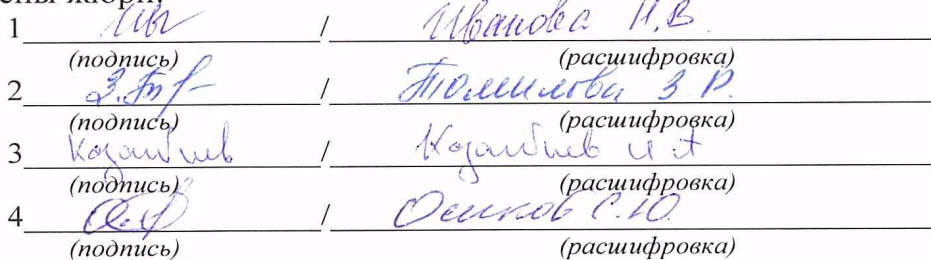 члены жюри:
1 / Иванова Н.В.
(подпись) (расшифровка)
2 / Томилова З.Р.
(подпись) (расшифровка)
3 /
(подпись) (расшифровка)
4 / Осипов С.Ю.
(подпись) (расшифровка)